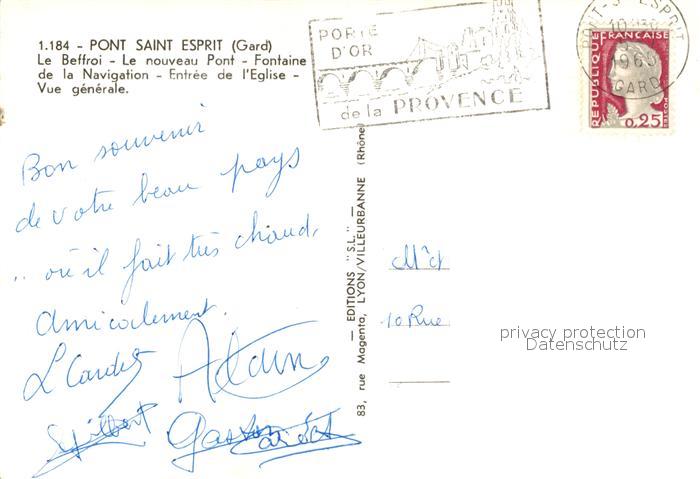 1.184 - PONT SAINT ESPRIT (Gard)
Le Beffroi - Le nouveau Pont - Fontaine
de la Navigation - Entrée de l'Eglise -
Vue générale.
PORTE
D'OR
de la PROVENCE
PONT-ST ESPRIT
1960
GARD
REPUBLIQUE FRANCAISE
POSTES
0,25
Bon souvenir
de votre beau pays
.. où il fait très chaud.
Amicalement.
Alain
Gaston
— EDITIONS "S.L." —
83, rue Magenta, LYON/VILLEURBANNE (Rhône)
10 Rue
privacy protection
Datenschutz